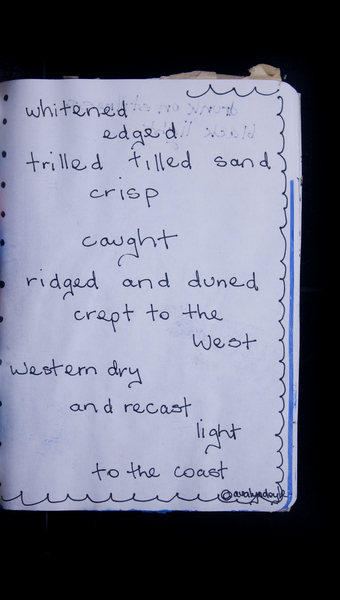 whitened
edged
trilled tilled sand
crisp
caught
ridged and duned
crept to the
West
Western dry
and recast
light
to the coast